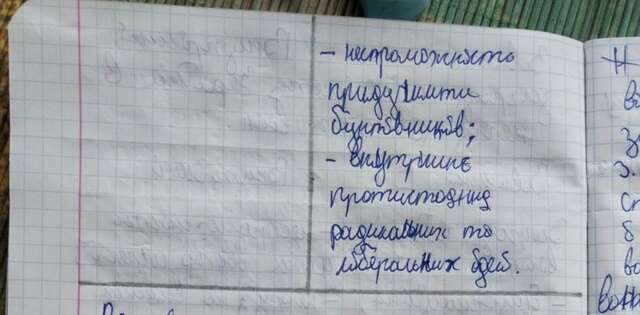 - неспроможність
придушити
бунтівників;
- внутрішнє
протистояння
радикальних та
ліберальних ідей.
Н
в
з
з.
с
б
во
вона